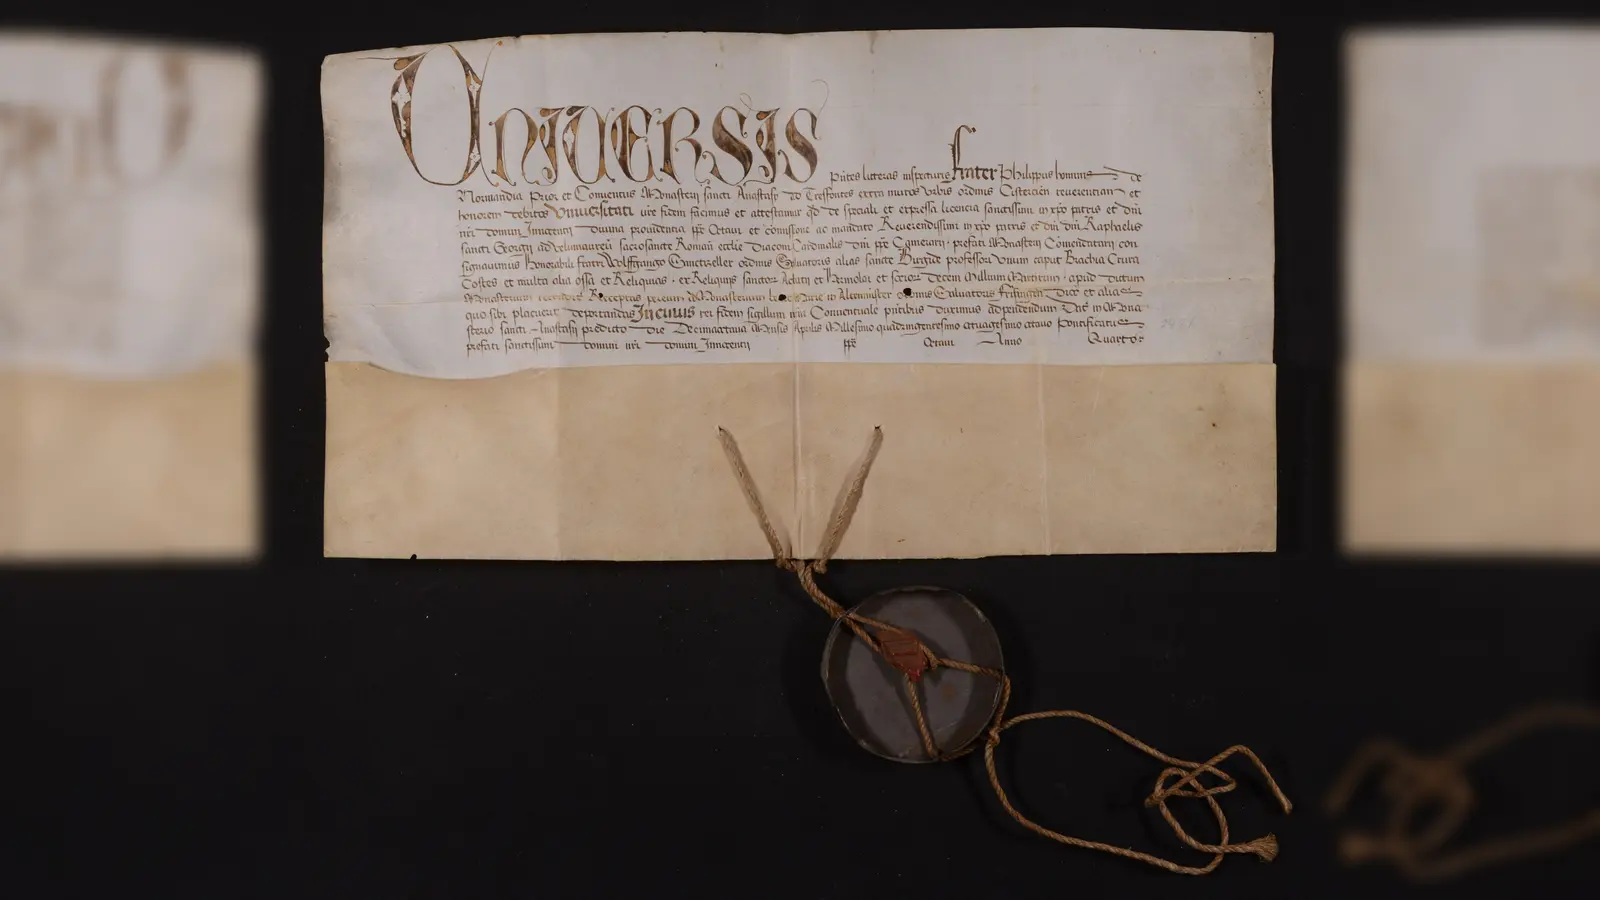 UNIVERSIS
pntes litteras inspecturis Frater Philippus homine de
Normandia Prior et Conventus Monasterij sancti Anastasij ad Tresfontes extra muros Urbis ordinis Cistercien reverentiam et
honorem debitos Universitati vre fidem facimus et attestamur qd de speciali et expressa licencia sanctissimi in xpo patris et dni
nri domini Innocentij divina providentia ppe Octavi et comissione ac mandato Reverendissimi in xpo patris et dni dni Raphaelis
sancti Georgij ad velumaureu sacrosancte Roman ecclie Diaconi Cardinalis dni ppe Camerarij prefati Monasterij Comendatarij con
signavimus honorabili fratri Wolffgango ordinis Salvatoris alias sancte Birgide professori Unum caput Brachia Crura
Costes et multa alia ossa et Reliquias et Reliquijs sanctor et Hermolai et socior Decem Millium Martirum apud dictum
Monasterium Receptas Monasterium Marie in Altenmünster ordinis Salvatoris Frisingen Dioc et alia
quo sibi placuerit deportandas In cuius rei fidem sigillum nrm Conventuale pntibus duximus adpendendum Dat in Mona
sterio sancti Anastasij predicto die Decimaoctava Mensis Aprilis Millesimo quadringentesimo octuagesimo octavo Pontificatus
prefati sanctissimi domini nri domini Innocentij ppe Octavi Anno Quarto